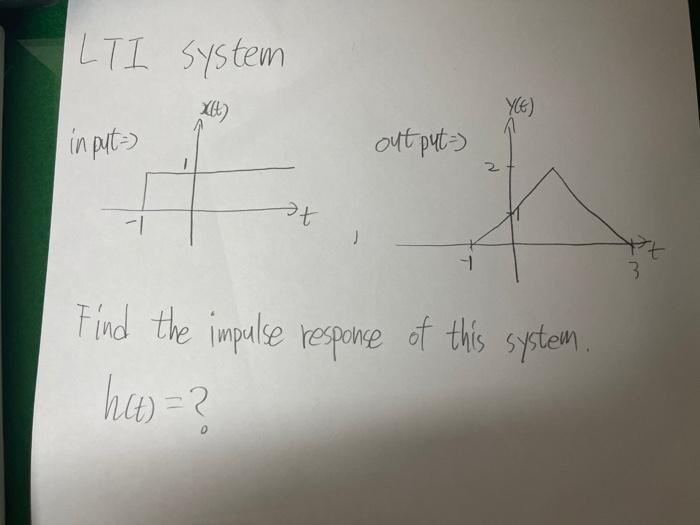 LTI system
x(t)
input=>
1
-1
t
,
y(t)
output=>
2
1
-1
3
t
Find the impulse response of this system.
h(t)=?